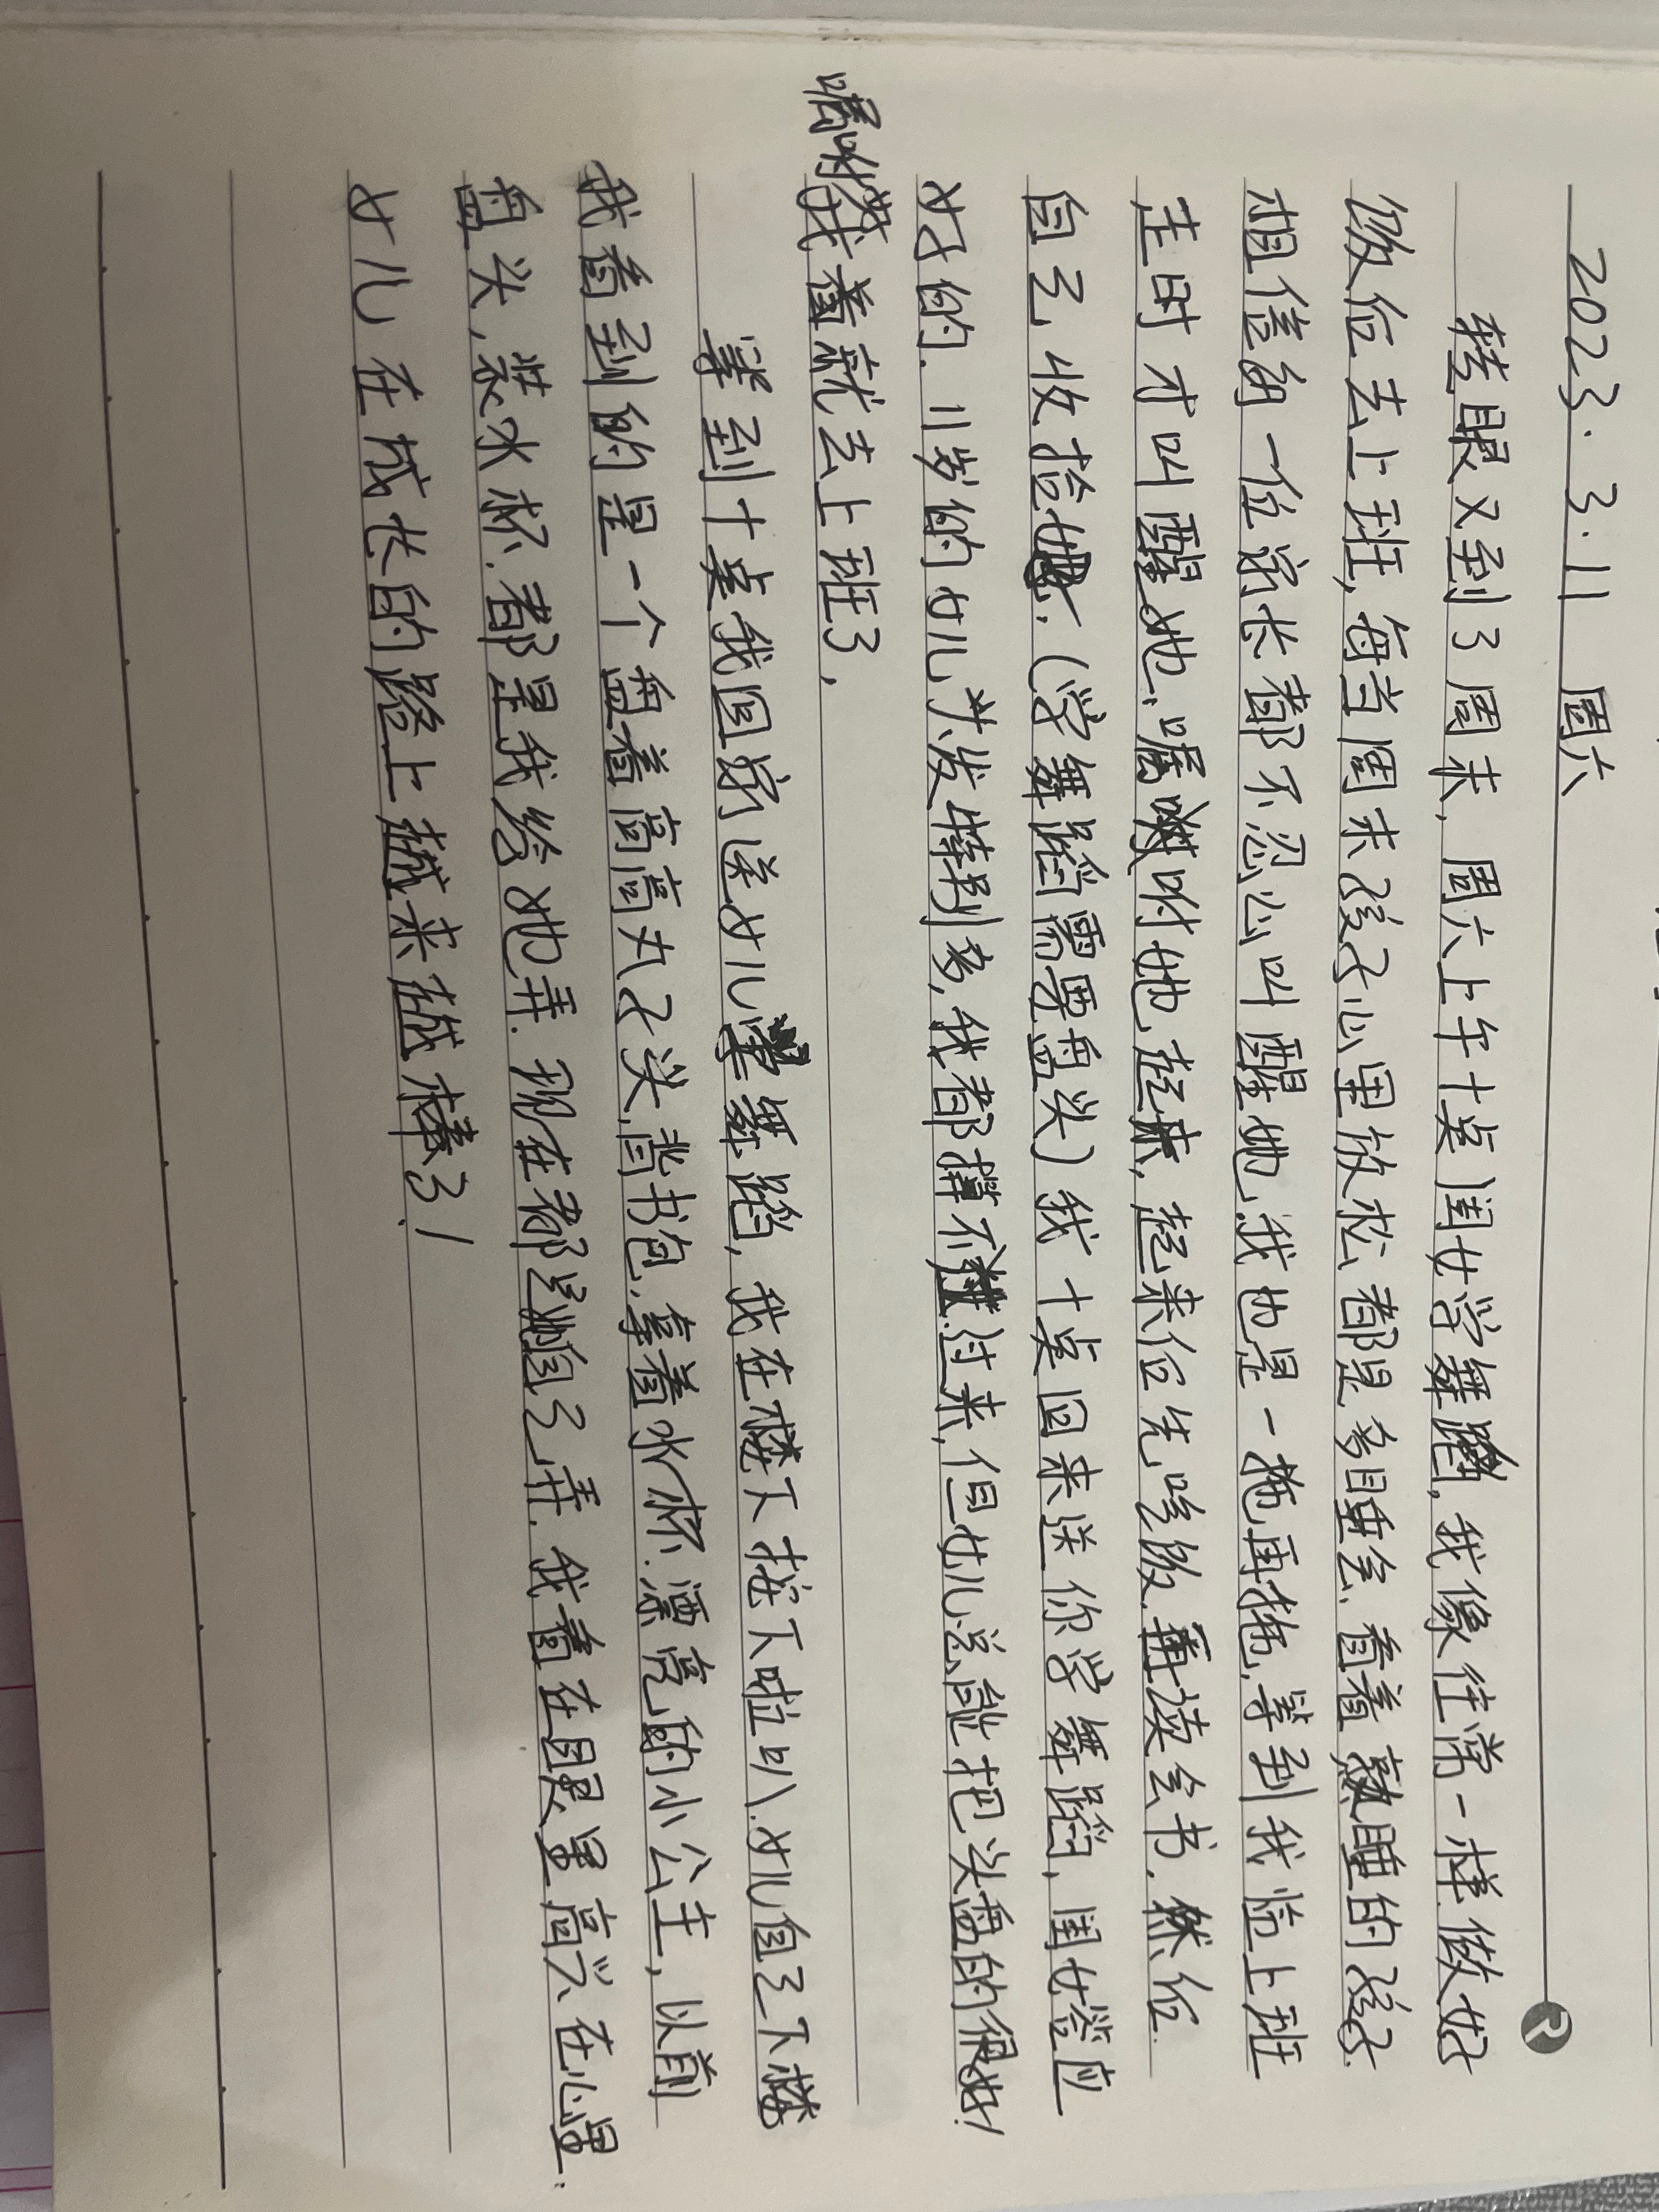 2023.3.11 周六
转眼又到了周末,周六上午十点闺女学舞蹈,我像往常一样做好
饭后去上班,每当周末孩子心里放松都是多睡会.看着熟睡的孩子.
相信每一位家长都不忍心叫醒她,我也是一拖再拖,等到我临上班
走时才叫醒她.嘱咐她起来,起来后先吃饭.再读会书.然后
自己收拾.(学舞蹈需要盘头)我十点回来送你学舞蹈,闺女答应
好的.11岁的女儿头发特别多,我都攥不过来,但女儿总能把头盘的很好!
嘱咐我着就去上班了,
等到十点我回家送女儿学舞蹈,我在楼下按下啦叭.女儿自己下楼
我看到的是一个盘着高高丸子头,背书包,拿着水杯.漂亮的小公主,以前
盘头,装水杯.都是我给她弄.现在都是她自己弄.我看在眼里高兴在心里.
女儿在成长的路上越来越棒了!